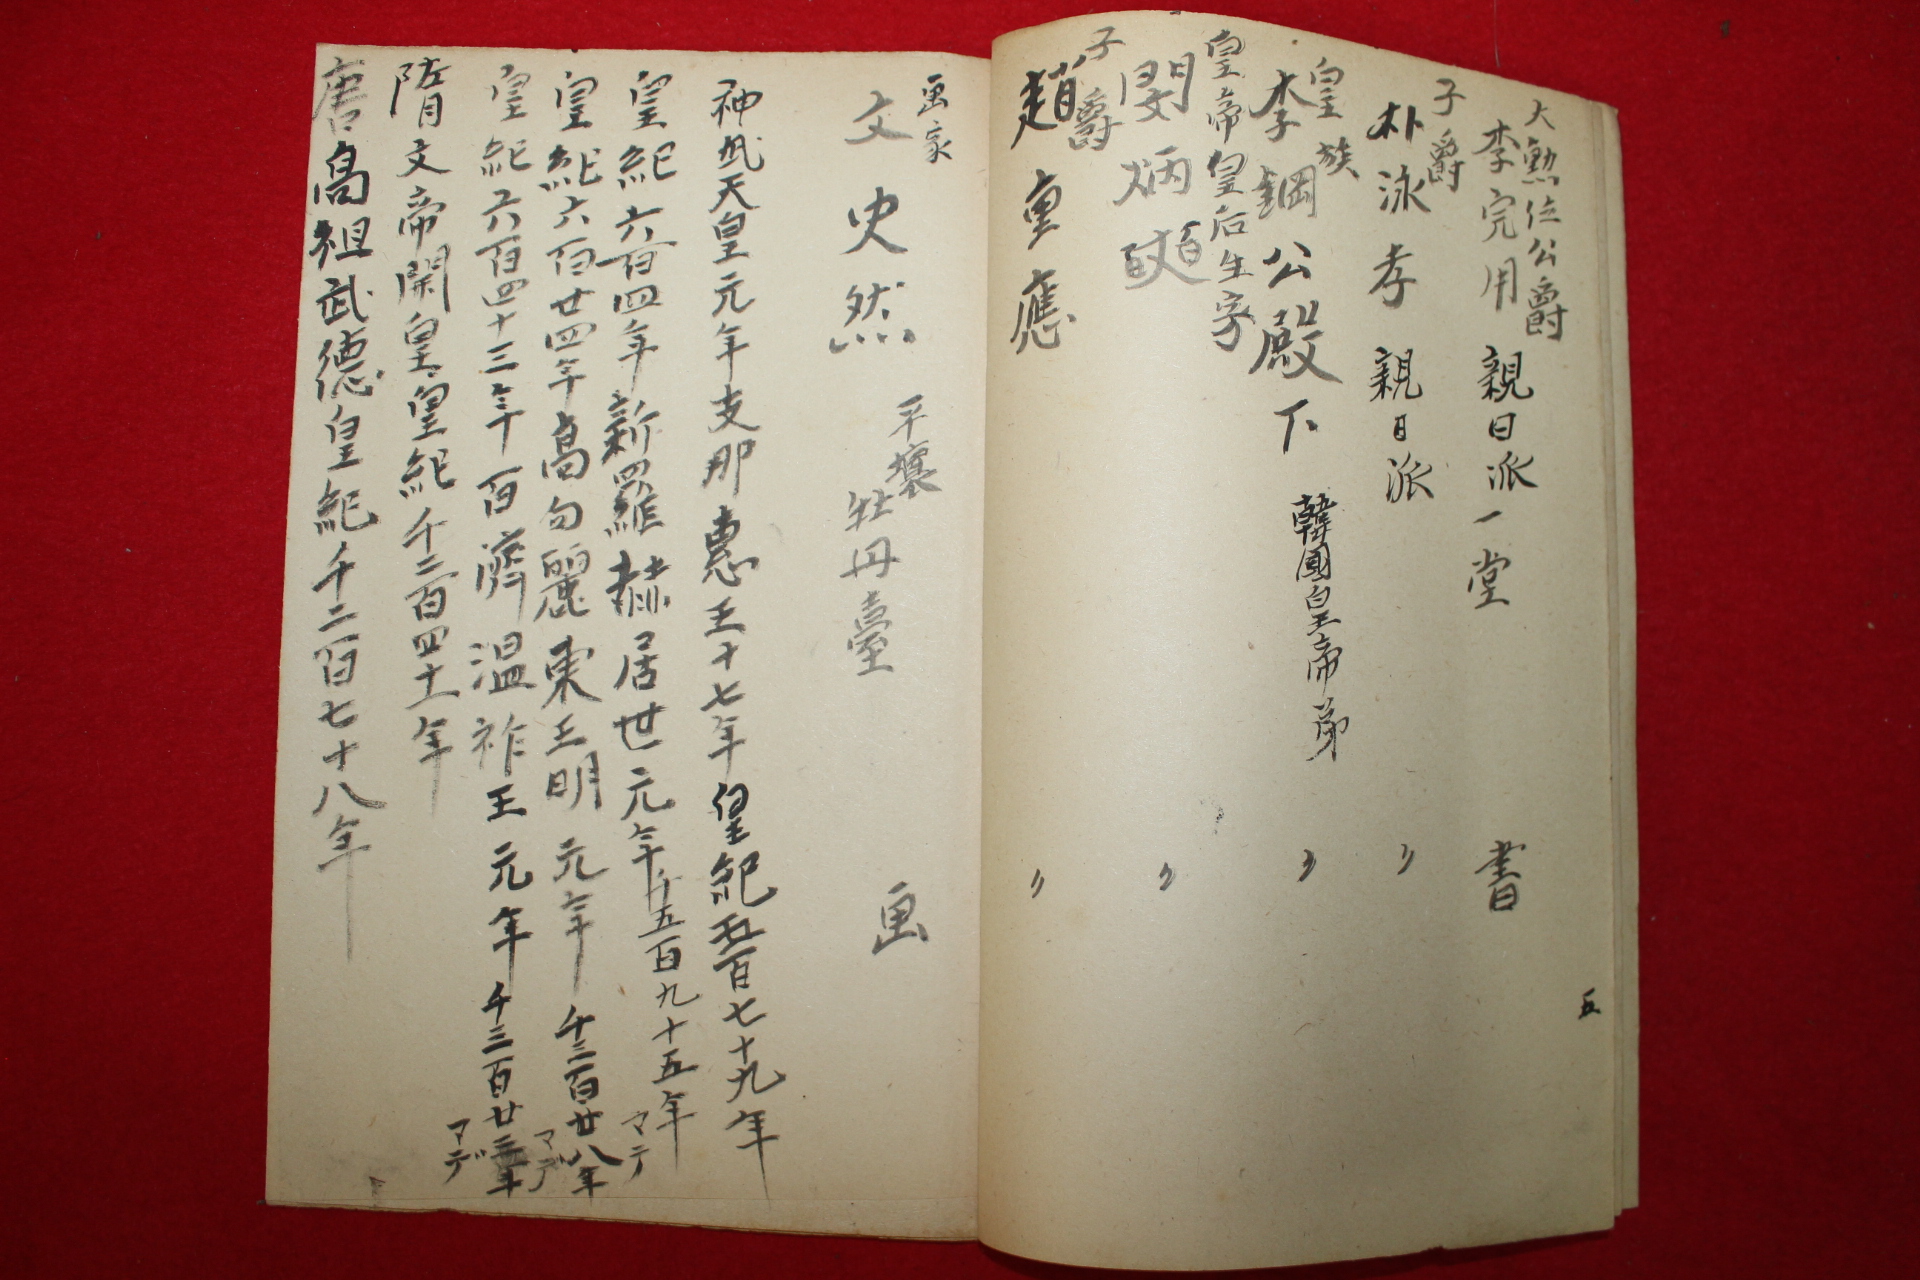 大勲位公爵
李完用 親日派 一堂 書
子爵
朴泳孝 親日派 〃
皇族
李鋼公殿下 韓國皇帝弟 〃
皇帝皇后生家
閔炳奭 〃
子爵
趙重應 〃
五
画家
文史然 平壤牡丹臺 画
神武天皇元年支那惠王十七年皇紀五百七十九年
皇紀六百四年新羅赫居世元年千五百九十五年マテ
皇紀六百廿四年高勾麗東王明元年千三百廿八年マデ
皇紀六百四十三年百濟温祚王元年千三百廿三年マデ
隋文帝開皇皇紀千二百四十一年
唐高祖武德皇紀千二百七十八年